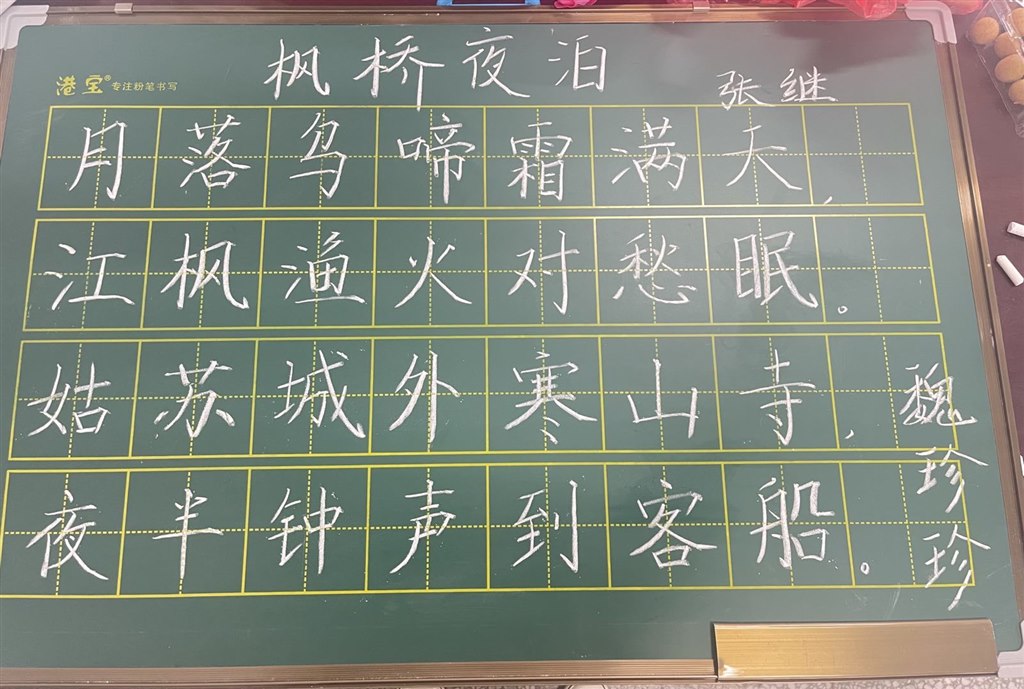 枫桥夜泊
港宝® 专注粉笔书写
张继
月落乌啼霜满天，
江枫渔火对愁眠。
姑苏城外寒山寺，
夜半钟声到客船。
魏珍珍